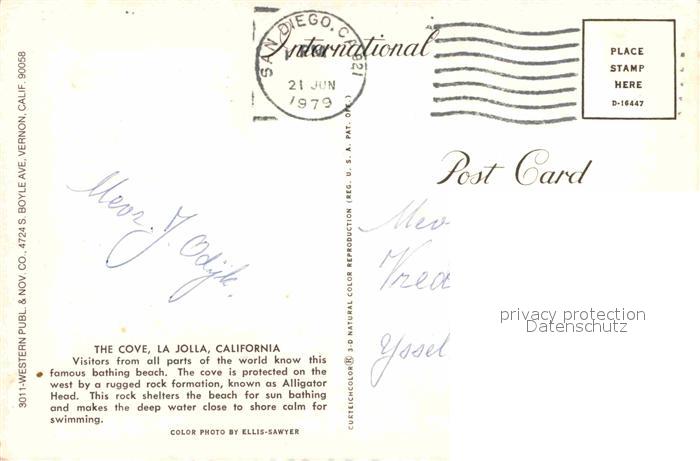 3011-WESTERN PUBL. & NOV. CO., 4724 S. BOYLE AVE, VERNON, CALIF. 90058
SAN DIEGO, CA 921
21 JUN
1979
International
PLACE
STAMP
HERE
D-16447
Post Card
Mevr. J. Odijk.
CURTEICHCOLOR® 3-D NATURAL COLOR REPRODUCTION (REG. U. S. A. PAT. OFF.)
Mev
Vred
Yssel
privacy protection
Datenschutz
THE COVE, LA JOLLA, CALIFORNIA
Visitors from all parts of the world know this
famous bathing beach. The cove is protected on the
west by a rugged rock formation, known as Alligator
Head. This rock shelters the beach for sun bathing
and makes the deep water close to shore calm for
swimming.
COLOR PHOTO BY ELLIS-SAWYER